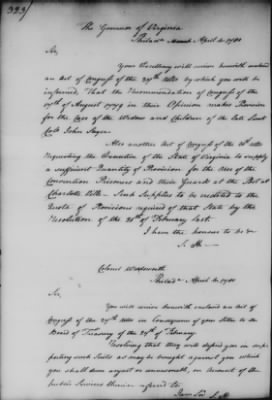 323
The Governor of Virginia
Philada March April 4. 1780
Sir,
Your Excellency will receive herewith enclosed
an Act of Congress of the 29th Ulto by which you will be
informed, That the Recommendation of Congress of the
17th of August 1779 in their Opinion makes Provision
for the Case of the Widow and Children of the late Lieut
Colo John
Also another Act of Congress of the Ulto
Requesting the Executive of the State of Virginia to supply
a sufficient Quantity of Provision for the Use of the
Convention Prisoners and their Guards at the Post at
Charlotte Ville - Such Supplies to be credited to the
Quota of Provisions required of that State by the
Resolution of the 25th of February last.
I have the honour to be &c
S. H.
Colonel Wadsworth
Philada April 4. 1780
Sir,
You will receive herewith enclosed an Act of
Congress of the 29th Ulto in Consequence of your Letter to the
Board of Treasury of the 24th of February
Resolving that they will defend you in sup-
porting such Suits as may be brought against you which
you shall deem unjust or unreasonable, on Account of the
public Services therein referred to
I am Sir S. H.